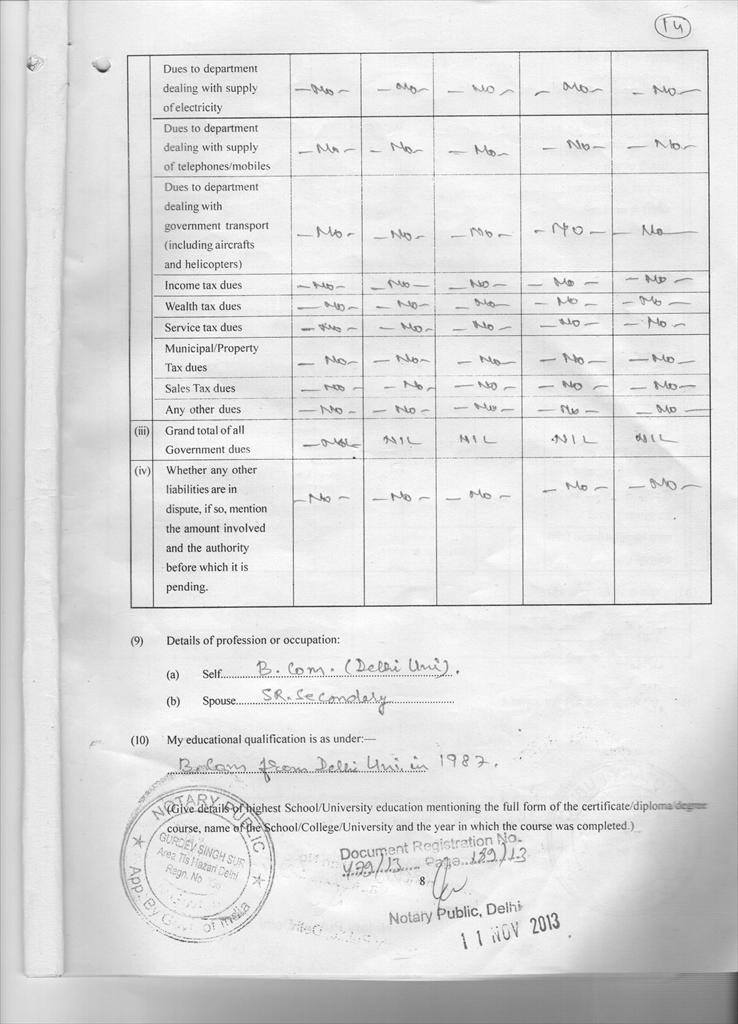 14
Dues to department
dealing with supply
of electricity
— No — — No — — No — — No — — No —
Dues to department
dealing with supply
of telephones/mobiles
— No — — No — — No — — No — — No —
Dues to department
dealing with
government transport
(including aircrafts
and helicopters)
— No — — No — — No — — No — — No —
Income tax dues — No — — No — — No — — No — — No —
Wealth tax dues — No — — No — — No — — No — — No —
Service tax dues — No — — No — — No — — No — — No —
Municipal/Property
Tax dues
— No — — No — — No — — No — — No —
Sales Tax dues — No — — No — — No — — No — — No —
Any other dues — No — — No — — No — — No — — No —
(iii) Grand total of all
Government dues
NIL NIL NIL NIL
(iv) Whether any other
liabilities are in
dispute, if so, mention
the amount involved
and the authority
before which it is
pending.
— No — — No — — No — — No — — No —
(9) Details of profession or occupation:
(a) Self B. Com. (Delhi Uni).
(b) Spouse SR. Secondary
(10) My educational qualification is as under:—
B.Com from Delhi Uni. in 1987.
(Give details of highest School/University education mentioning the full form of the certificate/diploma/degree
course, name of the School/College/University and the year in which the course was completed.)
NOTARY PUBLIC
GURDEV SINGH SUR
Area Tis Hazari Delhi
Regn. No
App. By Govt. of India
Document Registration No.
Page 189/13
8
Notary Public, Delhi
11 NOV 2013